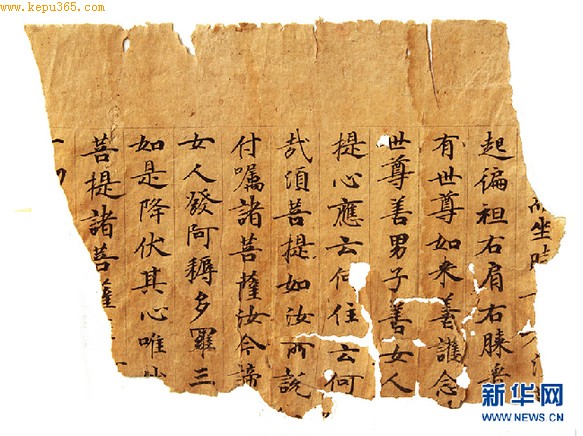 www.kepu365.com
坐時
起徧袒右肩右膝
有世尊如来善護念
世尊善男子善女人
提心應云何住云何
哉須菩提如汝所說
付嘱諸菩薩汝今諦
女人發阿耨多羅三
如是降伏其心唯
菩提諸菩薩
新华网
WWW.NEWS.CN